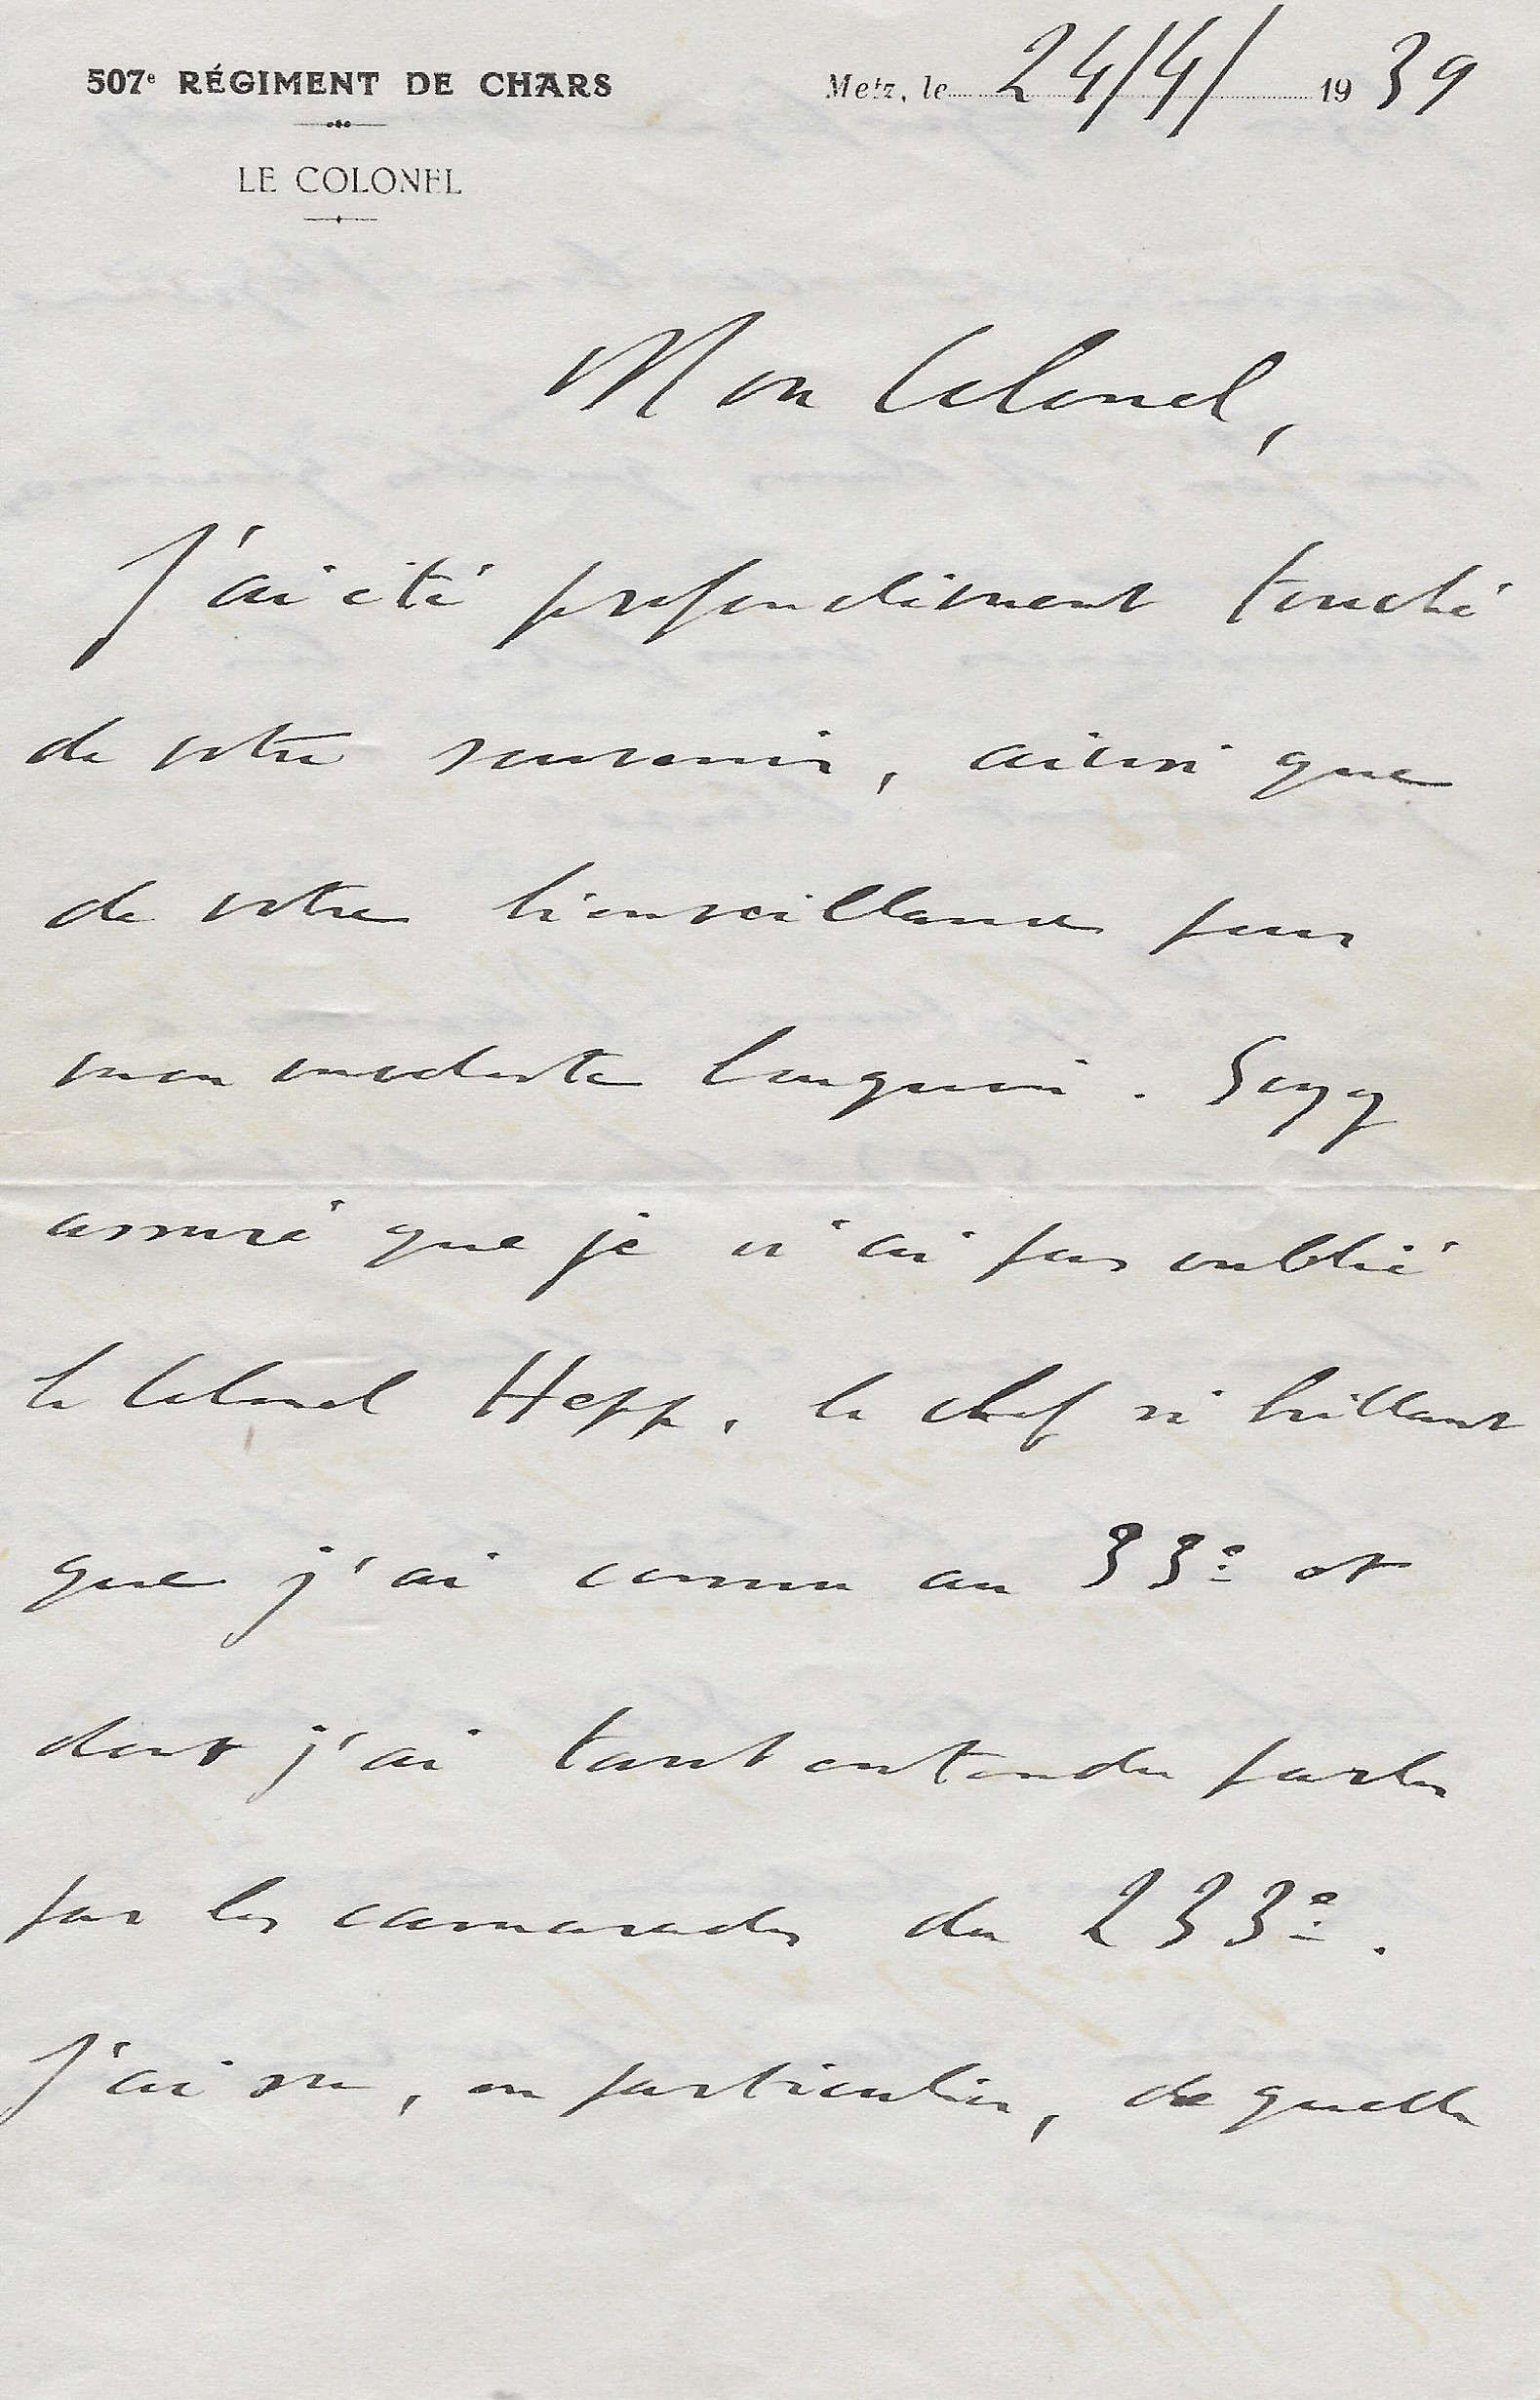 507e RÉGIMENT DE CHARS
LE COLONEL
Metz, le 24/4/ 1939
Mon Colonel,
J'ai été profondément touché
de votre souvenir, ainsi que
de votre bienveillance pour
mon modeste bouquin. Soyez
assuré que je n'ai pas oublié
le Colonel Hepp, le chef si brillant
que j'ai connu au 33e et
dont j'ai tant entendu parler
par les camarades du 233e.
J'ai su, en particulier, de quelle